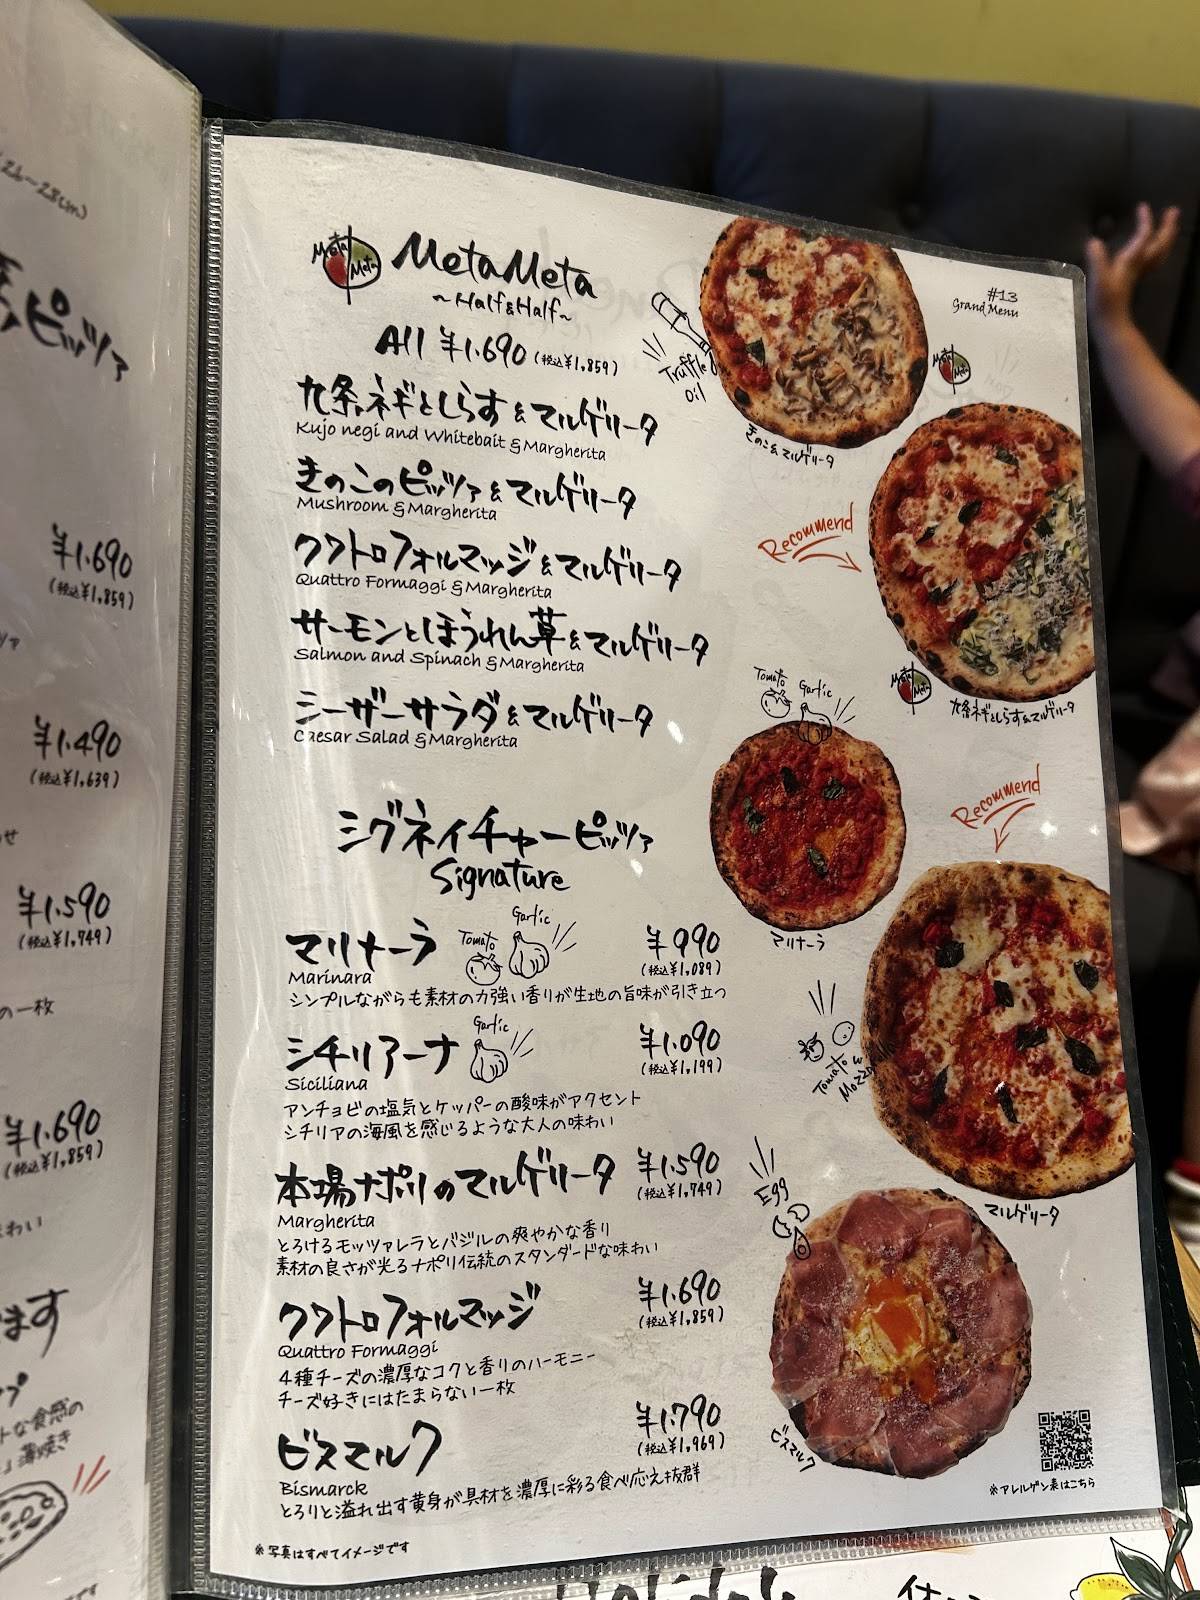 24〜28cm)
ピッツァ
¥1.690
(税込¥1,859)
¥1.490
(税込¥1,639)
¥1.590
(税込¥1,749)
の一枚
¥1.690
(税込¥1,859)
味わい
ます
食感の
薄焼き
#13
Grand Menu
Meta Meta
MetaMeta
〜Half&Half〜
All ¥1.690 (税込¥1,859)
九条ネギとしらす&マルゲリータ
Kujo negi and Whitebait &Margherita
きのこのピッツァ&マルゲリータ
Mushroom &Margherita
クワトロフォルマッジ&マルゲリータ
Quattro Formaggi &Margherita
サーモンとほうれん草&マルゲリータ
Salmon and Spinach &Margherita
シーザーサラダ&マルゲリータ
Caesar Salad &Margherita
シグネイチャーピッツァ
Signature
マリナーラ
Tomato
Garlic
¥990
(税込¥1,089)
Marinara
シンプルながらも素材の力強い香りが生地の旨味が引き立つ
シチリアーナ
Garlic
¥1.090
(税込¥1,199)
Siciliana
アンチョビの塩気とケッパーの酸味がアクセント
シチリアの海風を感じるような大人の味わい
本場ナポリのマルゲリータ
¥1.590
(税込¥1,749)
Margherita
とろけるモッツァレラとバジルの爽やかな香り
素材の良さが光るナポリ伝統のスタンダードな味わい
クワトロフォルマッジ
¥1.690
(税込¥1,859)
Quattro Formaggi
4種チーズの濃厚なコクと香りのハーモニー
チーズ好きにはたまらない一枚
ビスマルク
¥1.790
(税込¥1,969)
Bismarck
とろりと溢れ出す黄身が具材を濃厚に彩る食べ応え抜群
※写真はすべてイメージです
Truffle
Oil
きのこ&マルゲリータ
Meta Meta
Recommend
Meta Meta
九条ネギとしらす&マルゲリータ
Tomato
Garlic
マリナーラ
Recommend
Tomato
マルゲリータ
Egg
ビスマルク
※アレルゲン表はこちら